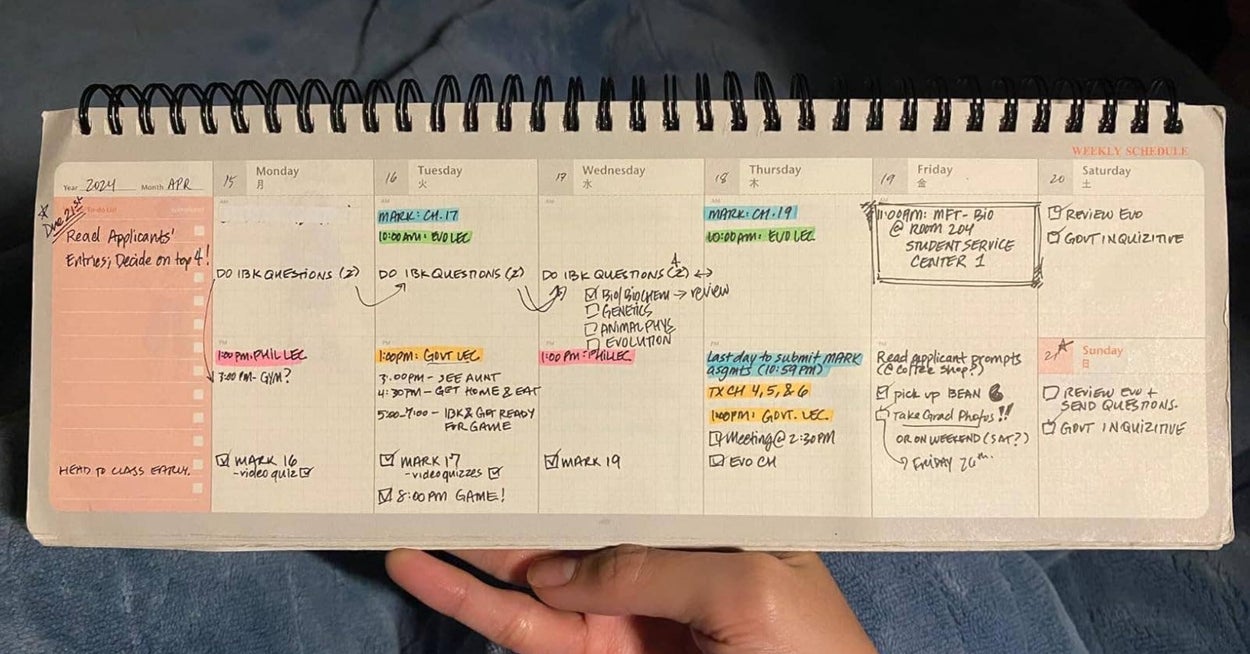 WEEKLY SCHEDULE
Year 2024 Month APR
Due 21st
To-do List
Read Applicants'
Entries; Decide on top 4!
HEAD TO CLASS EARLY.
15 Monday
月
DO IBK QUESTIONS (2)
PM
1:00 PM: PHIL LEC
3:00 PM - GYM?
MARK 16
- video quiz
16 Tuesday
火
AM
MARK: CH. 17
10:00 AM: EVO LEC
DO IBK QUESTIONS (2)
PM
1:00 PM: GOVT LEC
3:00 PM - SEE AUNT
4:30 PM - GET HOME & EAT
5:00-7:00 - IBK & GET READY
FOR GAME
MARK 17
- video quizzes
8:00 PM GAME!
17 Wednesday
水
AM
DO IBK QUESTIONS (2) 4
BIO/BIOCHEM → review
GENETICS
ANIMAL PHYS
EVOLUTION
PM
1:00 PM: PHIL LEC
MARK 19
18 Thursday
木
AM
MARK: CH. 19
10:00 AM: EVO LEC
PM
Last day to submit MARK
asgmts (10:59 PM)
TX CH 4, 5, & 6
1:00 PM: GOVT. LEC.
Meeting @ 2:30 PM
EVO CH
19 Friday
金
:00 AM: MFT-BIO
@ ROOM 204
STUDENT SERVICE
CENTER 1
PM
Read applicant prompts
(@ coffee shop?)
pick up BEAN
Take Grad Photos!!
OR ON WEEKEND (SAT?)
FRIDAY 26th.
20 Saturday
土
REVIEW EVO
GOVT INQUIZITIVE
21 Sunday
日
REVIEW EVO +
SEND QUESTIONS.
GOVT INQUIZITIVE